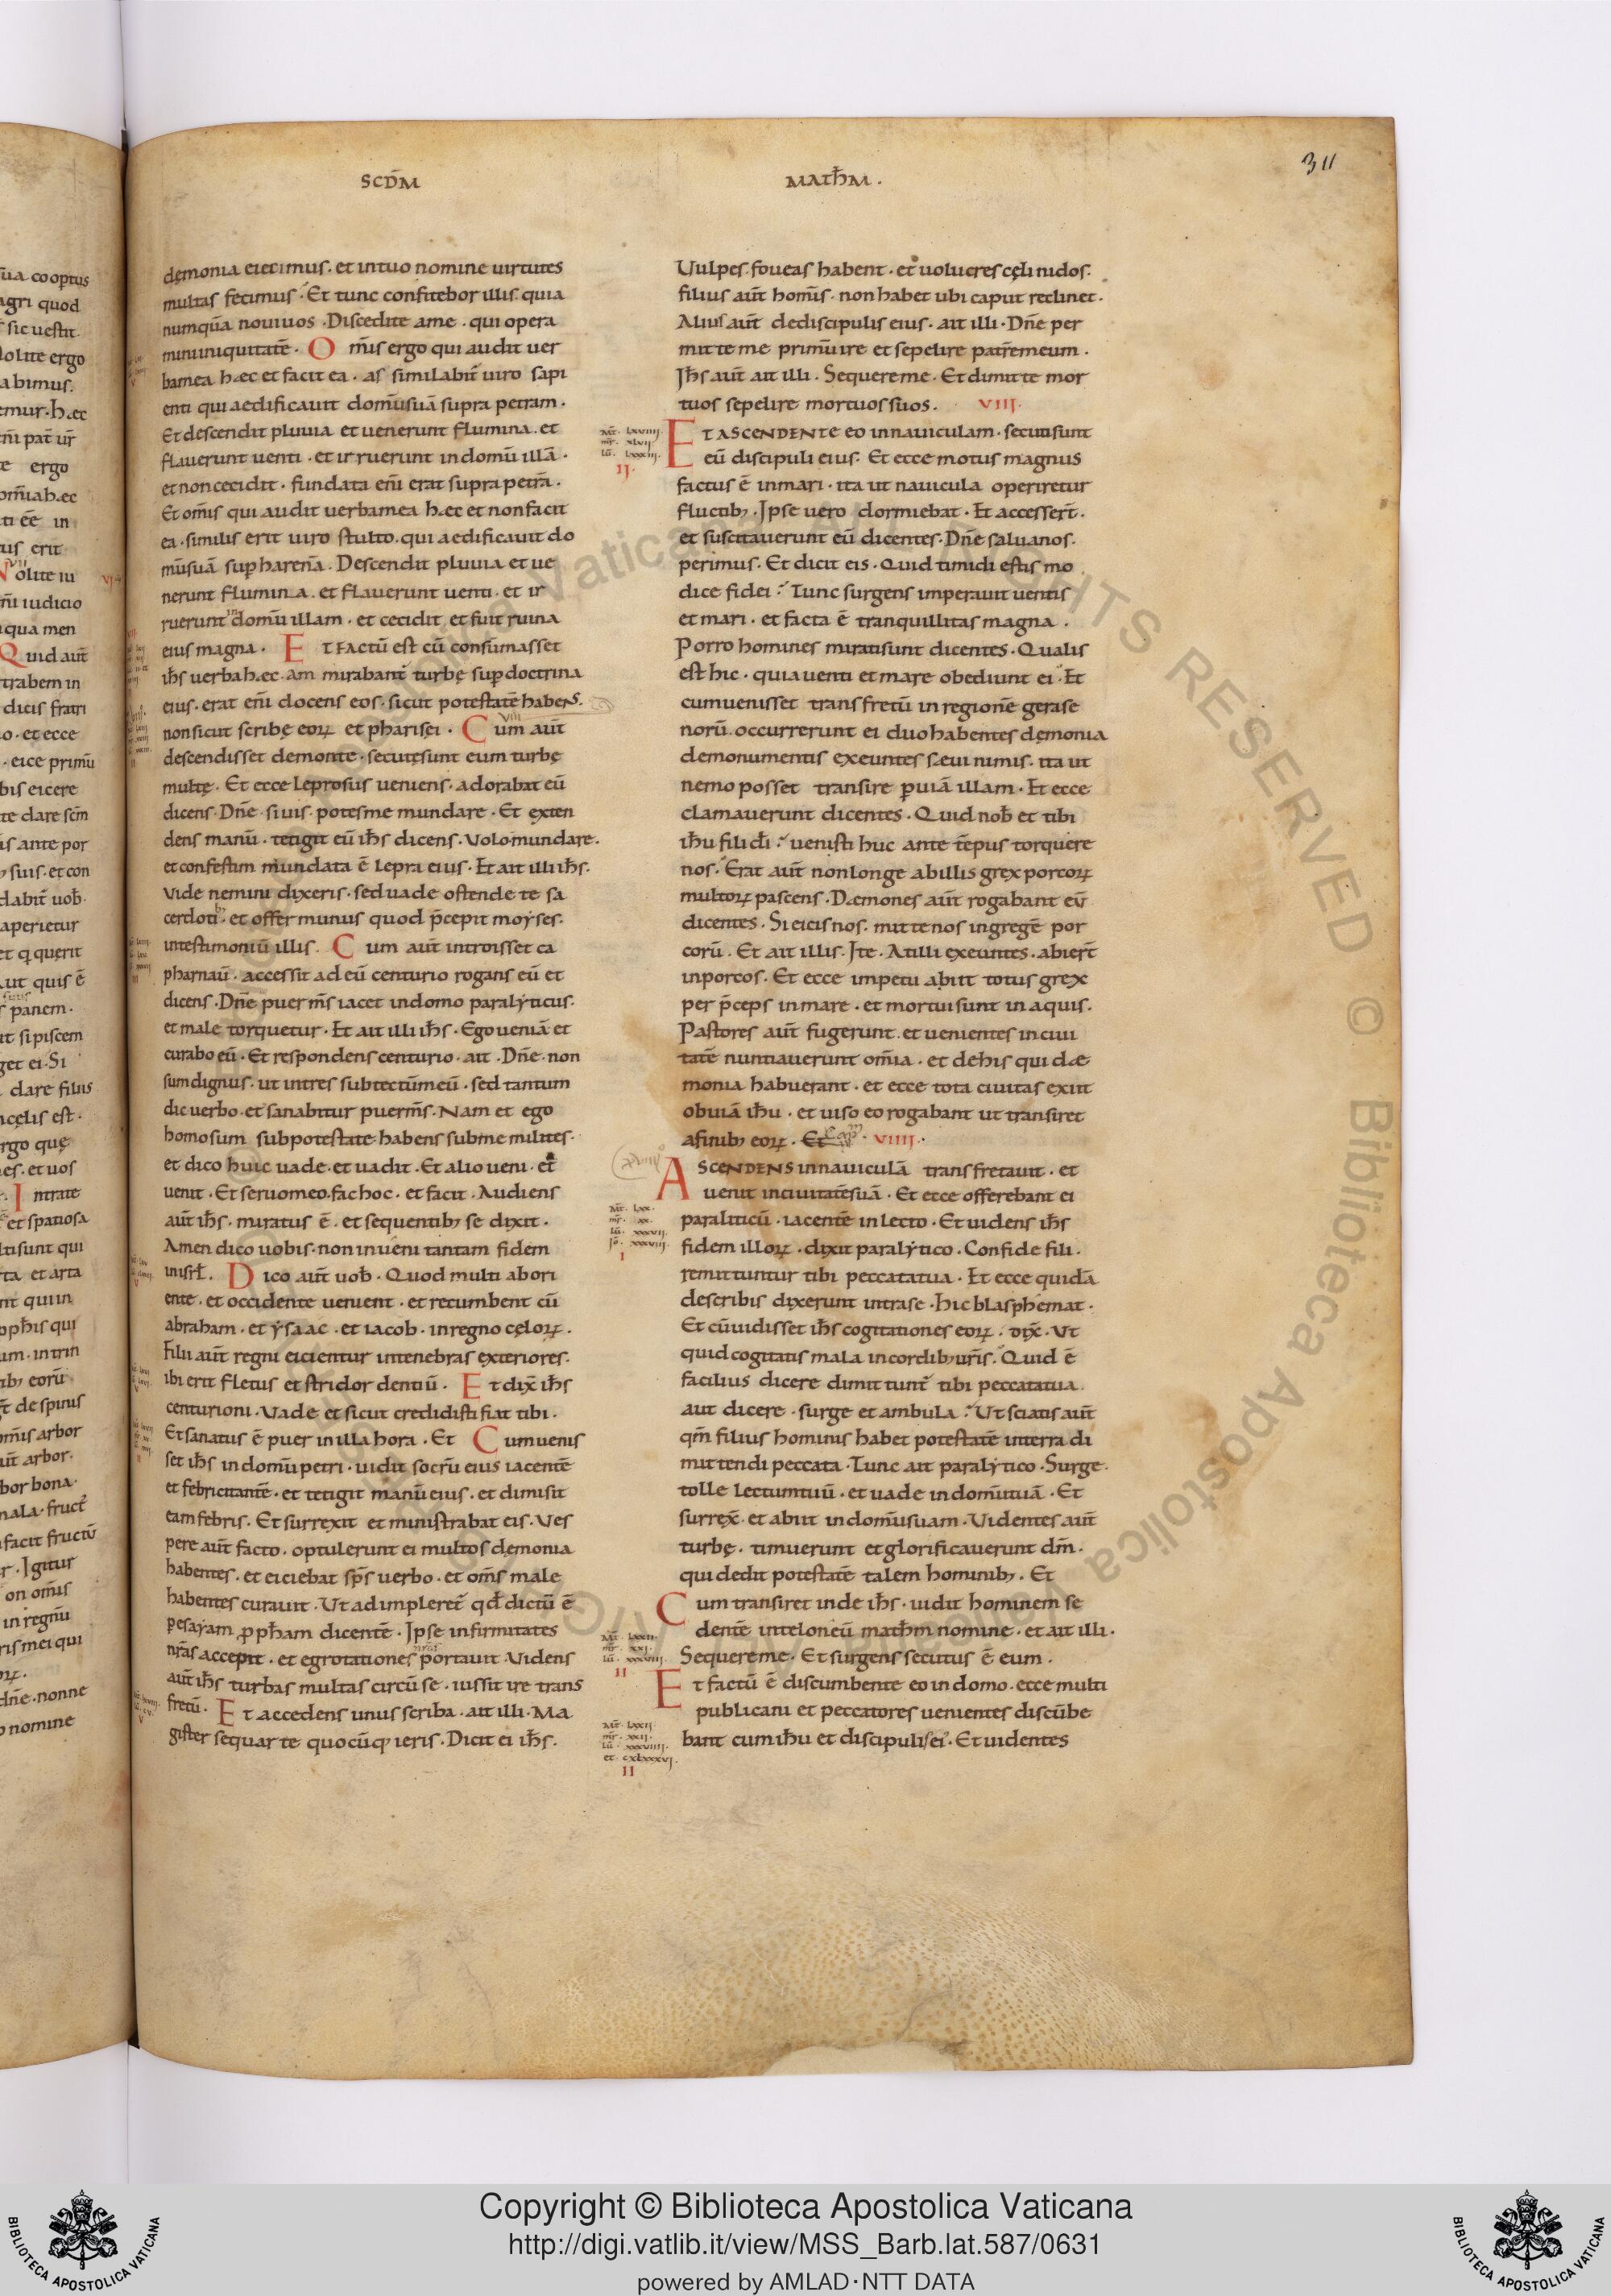 SCD̄M MATH̄M .
311
demonia eiecimus . et intuo nomine uirtutes
multas fecimus . Et tunc confitebor illis . quia
numquā noui uos . Discedite ame . qui opera
mini iniquitatē . O m̄is ergo qui audit uer
bamea hæc et facit ea . as similabit̄ uiro sapi
enti qui aedificauit domū suā supra petram .
Et descendit pluuia et uenerunt flumina . et
flauerunt uenti . et ir ruerunt in domū illā .
et non cecidit . fundata eni̅ erat supra petrā .
Et om̄is qui audit uerbamea hæc et non facit
ea . similis erit uiro stulto . qui aedificauit do
mū suā sup̄ harenā . Descendit pluuia et ue
nerunt flumina . et flauerunt uenti . et ir
ruerunt in domū illam . et cecidit . et fuit ruina
eius magna . E T FACTŪ est cū consūmasset
ih̄s uerba hæc . am mirabant̄ turbę sup̄ doctrina
eius . erat eni̅ docens eos . sicut potestatē habens .
non sicut scribę eoꝝ et pharisei . C um aut̄
descendisset demonte . secutę sunt eum turbę
multę . Et ecce leprosus ueniens . adorabat eū
dicens . Dn̄e si uis . potes me mundare . Et exten
dens manū . tetigit eū ih̄s dicens . Volo mundare .
et confestim mundata ē lepra eius . Et ait illi ih̄s .
Vide nemini dixeris . sed uade ostende te sa
cerdoti . et offer munus quod p̄cepit moyses .
intestimoniū illis . C um aut̄ introisset ca
pharnaū . accessit ad eū centurio rogans eū et
dicens . Dn̄e puer m̄s iacet in domo paralyticus .
et male torquetur . Et ait illi ih̄s . Ego ueniā et
curabo eū . Et respondens centurio . ait . Dn̄e . non
sum dignus . ut intres sub tectū meū . sed tantum
dic uerbo . et sanabitur puer m̄s . Nam et ego
homo sum sub potestate habens sub me milites .
et dico huic uade . et uadit . Et alio ueni . et
uenit . Et seruo meo . fac hoc . et facit . Audiens
aut̄ ih̄s . miratus ē . et sequentibꝫ se dixit .
Amen dico uobis . non inueni tantam fidem
in isrł . D ico aut̄ uob̄ . Quod multi abori
ente . et occidente uenient . et recumbent cū
abraham . et ysaac . et iacob . in regno cęloꝝ .
Filii aut̄ regni eicientur intenebras exteriores .
ibi erit fletus et stridor dentiū . E t dix̄ ih̄s
centurioni . Vade et sicut credidisti fiat tibi .
Et sanatus ē puer in illa hora . Et C um uenis
set ih̄s in domū petri . uidit socrū eius iacentē
et febricitantē . et tetigit manū eius . et dimisit
eam febris . Et surrexit et ministrabat eis . Ves
pere aut̄ facto . optulerunt ei multos demonia
habentes . et eiciebat sp̄s uerbo . et om̄s male
habentes curauit . Ut adimpleret̄ qd̄ dictū ē
pesayam ꝓph̄am dicentē . Ipse infirmitates
nr̄as accepit . et egrotationes portauit . Videns
aut̄ ih̄s turbas multas circū se . iussit ire trans
fretū . E t accedens unus scriba . ait illi . Ma
gister sequar te quocūqꝫ ieris . Dicit ei ih̄s .
Uulpes foueas habent . et uolucres cęli nidos .
filius aut̄ homīs . non habet ubi caput reclinet .
Alius aut̄ dediscipulis eius . ait illi . Dn̄e per
mitte me primū ire et sepelire patrē meum .
Ih̄s aut̄ ait illi . Sequere me . Et dimitte mor
tuos sepelire mortuos suos . VIII .
E T ASCENDENTE eo in nauiculam . secuti sunt
eū discipuli eius . Et ecce motus magnus
factus ē in mari . ita ut nauicula operiretur
fluctibꝫ . Ipse uero dormiebat . Et accesser̄t .
et suscitauerunt eū dicentes . Dn̄e salua nos .
perimus . Et dicit eis . Quid timidi estis mo
dice fidei ? Tunc surgens imperauit uentis
et mari . et facta ē tranquillitas magna .
Porro homines mirati sunt dicentes . Qualis
est hic . quia uenti et mare obediunt ei . Et
cum uenisset trans fretū in regionē gerase
norū . occurrerunt ei duo habentes demonia
demonumentis exeuntes sæui nimis . ita ut
nemo posset transire p uiā illam . Et ecce
clamauerunt dicentes . Quid nob̄ et tibi
ih̄u fili dī ? uenisti huc ante tēpus torquere
nos . Erat aut̄ non longe abillis grex porcoꝝ
multoꝝ pascens . Dæmones aut̄ rogabant eū
dicentes . Si eicis nos . mitte nos in gregē por
corū . Et ait illis . Ite . At illi exeuntes . abier̄t
inporcos . Et ecce impetu abiit totus grex
per p̄ceps in mare . et mortui sunt in aquis .
Pastores aut̄ fugerunt . et uenientes in ciui
tatē nuntiauerunt om̄ia . et dehis qui dæ
monia habuerant . et ecce tota ciuitas exiit
obuiā ih̄u . et uiso eo rogabant ut transiret
afinibꝫ eoꝝ . Et VIIII .
A SCENDENS in nauiculā trans fretauit . et
uenit in ciuitatē suā . Et ecce offerebant ei
paraliticū . iacentē in lecto . Et uidens ih̄s
fidem illoꝝ . dixit paralytico . Confide fili .
remittuntur tibi peccata tua . Et ecce quidā
describis dixerunt intra se . hic blasphemat .
Et cū uidisset ih̄s cogitationes eoꝝ . dix̄ . Ut
quid cogitatis mala in cordibꝫ ur̄is . Quid ē
facilius dicere dimittunt̄ tibi peccata tua .
aut dicere . surge et ambula ? Ut sciatis aut̄
qm̄ filius hominis habet potestatē interra di
mittendi peccata . Tunc ait paralytico . Surge .
tolle lectum tuū . et uade in domū tuā . Et
surrex̄ . et abiit in domū suam . Uidentes aut̄
turbę . timuerunt et glorificauerunt dm̄ .
qui dedit potestatē talem hominibꝫ . Et
C um transiret inde ih̄s . uidit hominem se
dentē inteloneū math̄m nomine . et ait illi .
Sequere me . Et surgens secutus ē eum .
E t factū ē discumbente eo in domo . ecce multi
publicani et peccatores uenientes discūbe
bant cum ih̄u et discipulis ei᾽ . Et uidentes
Copyright © Biblioteca Apostolica Vaticana
http://digi.vatlib.it/view/MSS_Barb.lat.587/0631
powered by AMLAD·NTT DATA
BIBLIOTECA APOSTOLICA VATICANA
BIBLIOTECA APOSTOLICA VATICANA